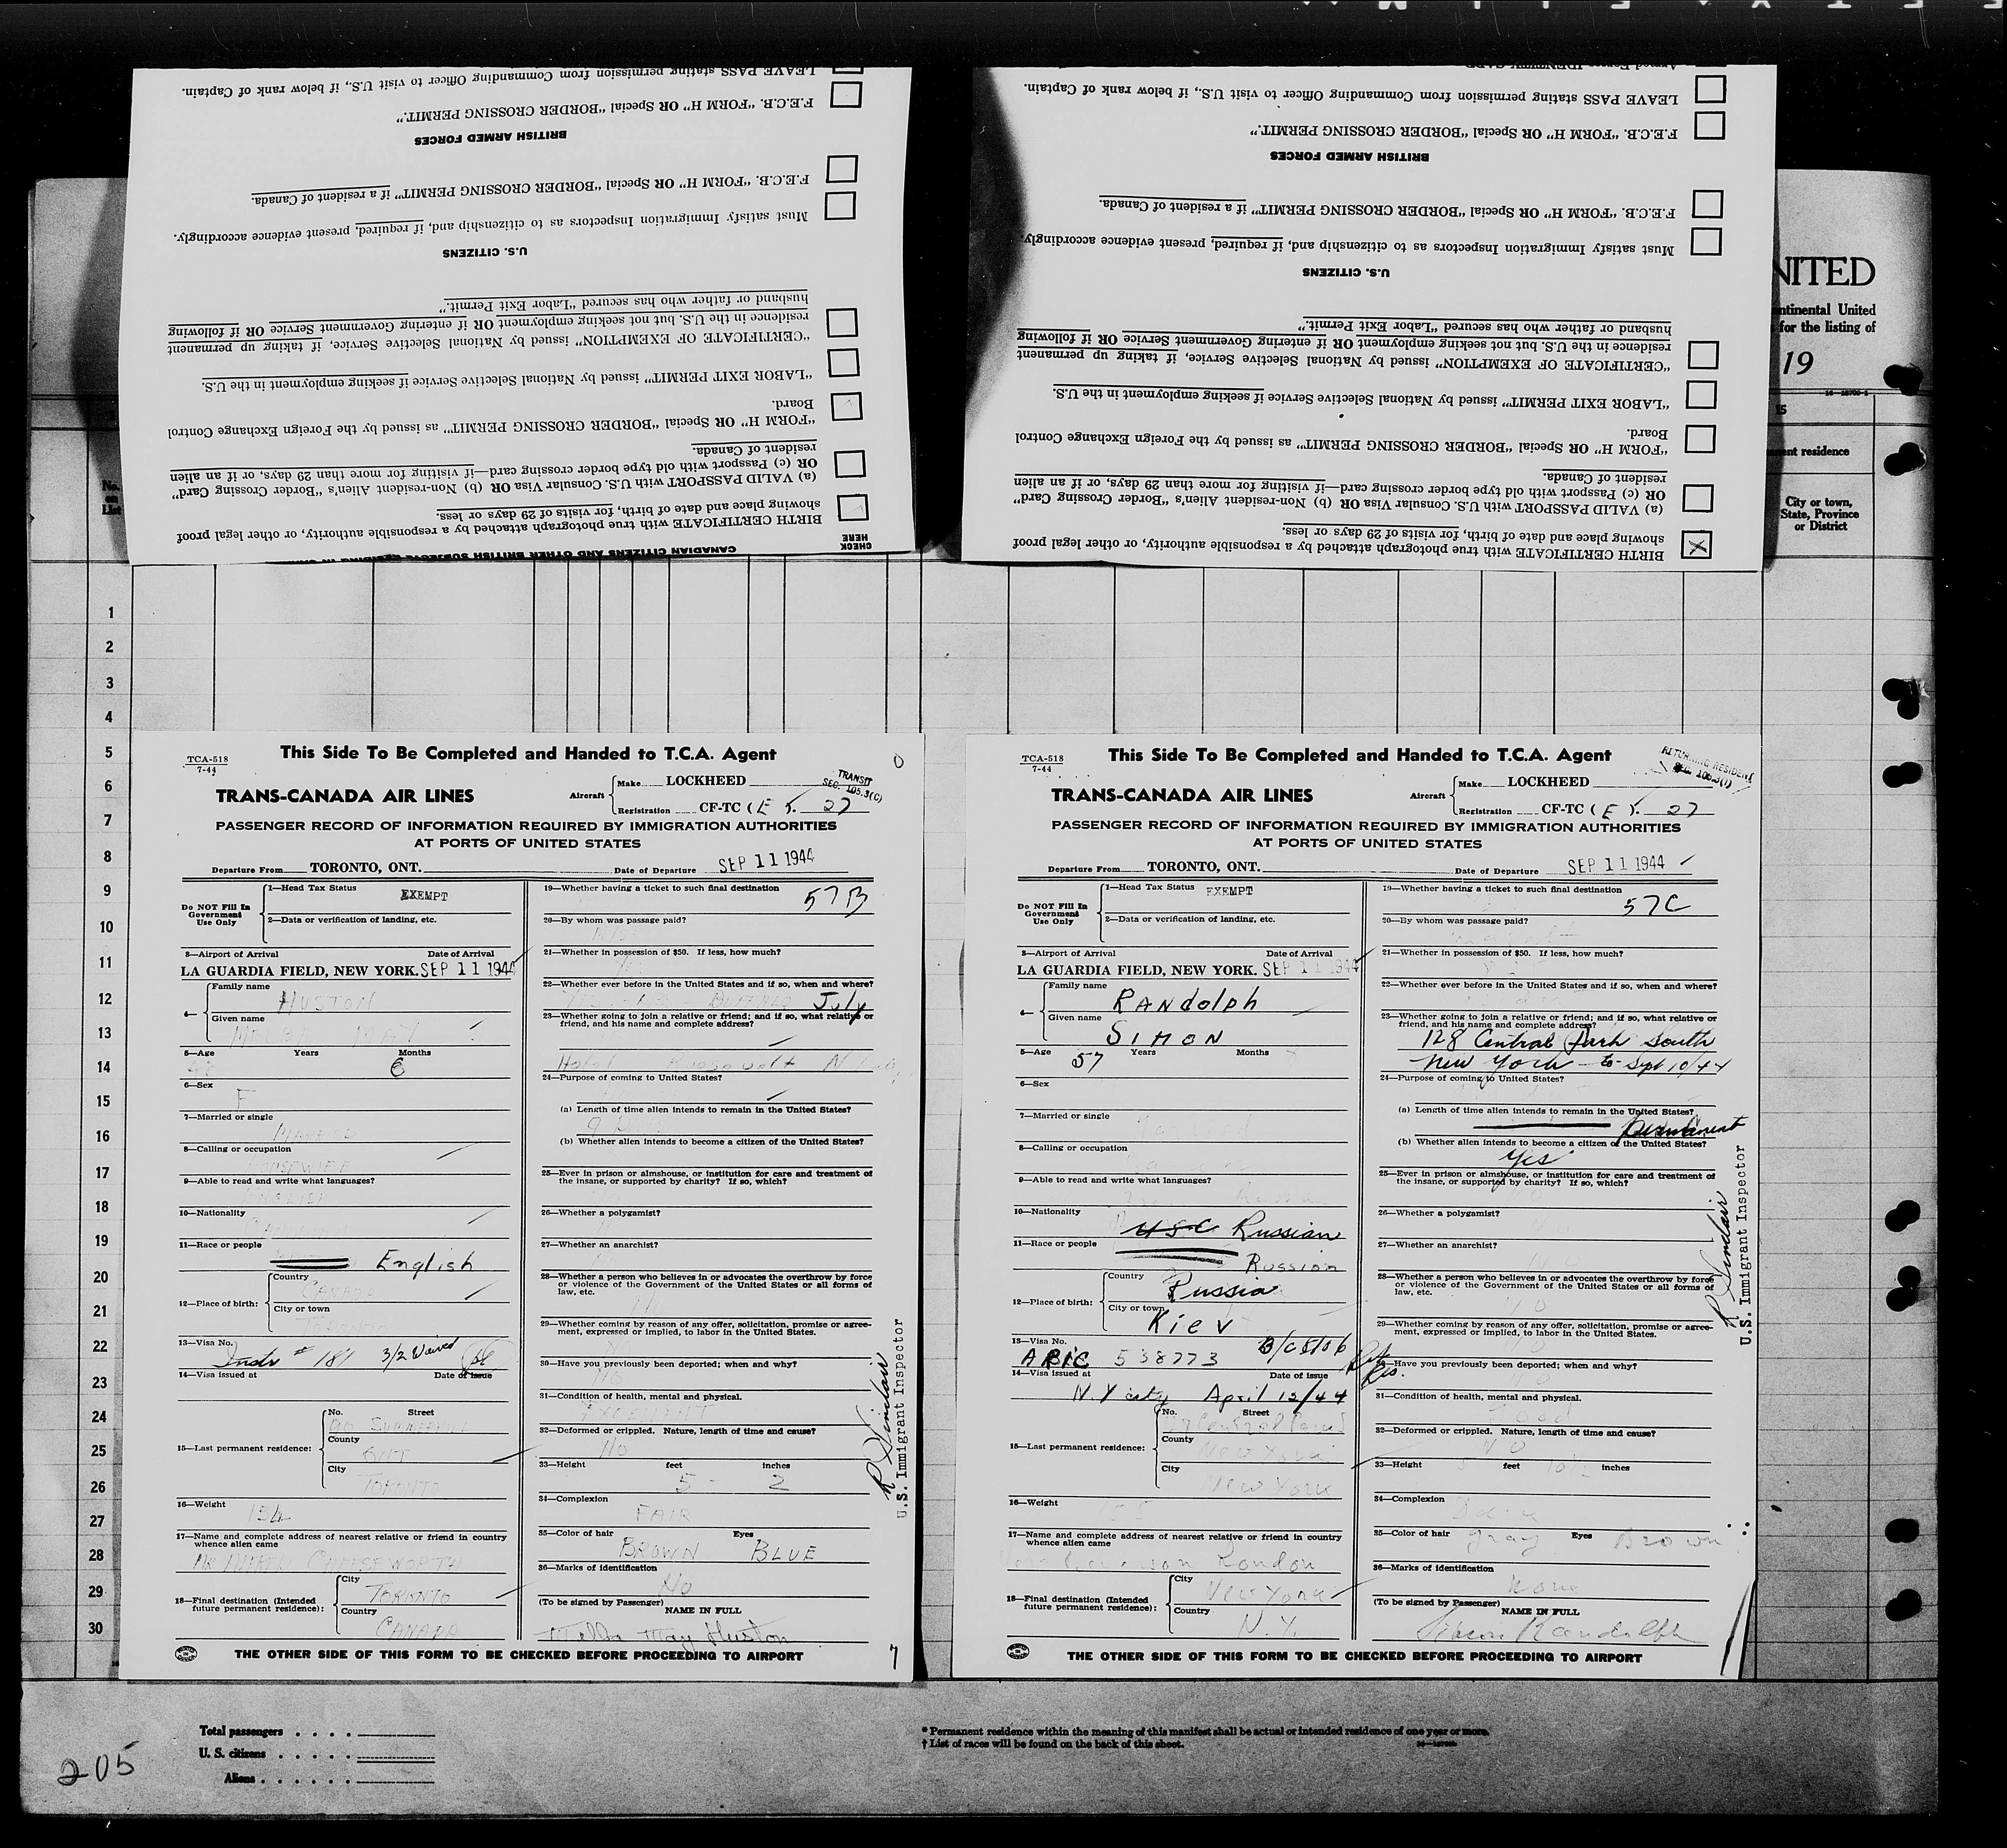 LEAVE PASS stating permission from Commanding Officer to visit U.S., if below rank of Captain.
F.E.C.B. "FORM H" OR Special "BORDER CROSSING PERMIT."
BRITISH ARMED FORCES
F.E.C.B. "FORM H" OR Special "BORDER CROSSING PERMIT" if a resident of Canada.
Must satisfy Immigration Inspectors as to citizenship and, if required, present evidence accordingly.
U.S. CITIZENS
husband or father who has secured "Labor Exit Permit."
residence in the U.S. but not seeking employment OR if entering Government Service OR if following
"CERTIFICATE OF EXEMPTION" issued by National Selective Service, if taking up permanent
"LABOR EXIT PERMIT" issued by National Selective Service if seeking employment in the U.S.
Board.
"FORM H" OR Special "BORDER CROSSING PERMIT" as issued by the Foreign Exchange Control
resident of Canada.
OR (c) Passport with old type border crossing card—if visiting for more than 29 days, or if an alien
(a) VALID PASSPORT with U.S. Consular Visa OR (b) Non-resident Alien's "Border Crossing Card"
showing place and date of birth, for visits of 29 days or less.
BIRTH CERTIFICATE with true photograph attached by a responsible authority, or other legal proof
CHECK HERE
CANADIAN CITIZENS AND OTHER BRITISH SUBJECTS
LEAVE PASS stating permission from Commanding Officer to visit U.S., if below rank of Captain.
F.E.C.B. "FORM H" OR Special "BORDER CROSSING PERMIT."
BRITISH ARMED FORCES
F.E.C.B. "FORM H" OR Special "BORDER CROSSING PERMIT" if a resident of Canada.
Must satisfy Immigration Inspectors as to citizenship and, if required, present evidence accordingly.
U.S. CITIZENS
husband or father who has secured "Labor Exit Permit."
residence in the U.S. but not seeking employment OR if entering Government Service OR if following
"CERTIFICATE OF EXEMPTION" issued by National Selective Service, if taking up permanent
"LABOR EXIT PERMIT" issued by National Selective Service if seeking employment in the U.S.
Board.
"FORM H" OR Special "BORDER CROSSING PERMIT" as issued by the Foreign Exchange Control
resident of Canada.
OR (c) Passport with old type border crossing card—if visiting for more than 29 days, or if an alien
(a) VALID PASSPORT with U.S. Consular Visa OR (b) Non-resident Alien's "Border Crossing Card"
showing place and date of birth, for visits of 29 days or less.
BIRTH CERTIFICATE with true photograph attached by a responsible authority, or other legal proof
X
NITED
ntinental United
for the listing of
19
15
nent residence
City or town,
State, Province
or District
No.
on
List
1
2
3
4
5
6
7
8
9
10
11
12
13
14
15
16
17
18
19
20
21
22
23
24
25
26
27
28
29
30
TCA-518
7-44
This Side To Be Completed and Handed to T.C.A. Agent
TRANS-CANADA AIR LINES
Aircraft
Make LOCKHEED
Registration CF-TC (E). 27
TRANSIT
SEC. 105.3(C)
PASSENGER RECORD OF INFORMATION REQUIRED BY IMMIGRATION AUTHORITIES
AT PORTS OF UNITED STATES
Departure From TORONTO, ONT. Date of Departure SEP 11 1944
Do NOT Fill In
Government
Use Only
1—Head Tax Status EXEMPT
2—Data or verification of landing, etc.
3—Airport of Arrival Date of Arrival
LA GUARDIA FIELD, NEW YORK. SEP 11 1944
4—
Family name HUSTON
Given name MAY
5—Age Years Months 6
6—Sex F
7—Married or single MARRIED
8—Calling or occupation HOUSEWIFE
9—Able to read and write what languages? ENGLISH
10—Nationality
11—Race or people English
12—Place of birth:
Country CANADA
City or town
13—Visa No. # 187 3/2 Waived
14—Visa issued at Date of issue
15—Last permanent residence:
No. Street
County ONT
City TORONTO
16—Weight 154
17—Name and complete address of nearest relative or friend in country
whence alien came
MR CHEESEWORTH
18—Final destination (Intended
future permanent residence):
City TORONTO
Country CANADA
19—Whether having a ticket to such final destination 57B
20—By whom was passage paid?
21—Whether in possession of $50. If less, how much?
22—Whether ever before in the United States and if so, when and where?
BUFFALO July
23—Whether going to join a relative or friend; and if so, what relative or
friend, and his name and complete address?
Hotel Roosevelt N
24—Purpose of coming to United States?
(a) Length of time alien intends to remain in the United States?
(b) Whether alien intends to become a citizen of the United States?
25—Ever in prison or almshouse, or institution for care and treatment of
the insane, or supported by charity? If so, which?
26—Whether a polygamist?
27—Whether an anarchist?
28—Whether a person who believes in or advocates the overthrow by force
or violence of the Government of the United States or all forms of
law, etc. No
29—Whether coming by reason of any offer, solicitation, promise or agree-
ment, expressed or implied, to labor in the United States.
30—Have you previously been deported; when and why? No
31—Condition of health, mental and physical. EXCELLENT
32—Deformed or crippled. Nature, length of time and cause? No
33—Height feet inches
5 - 2
34—Complexion FAIR
35—Color of hair Eyes
BROWN BLUE
36—Marks of identification No
(To be signed by Passenger) NAME IN FULL
Melba May Huston
R Sinclair
U.S. Immigrant Inspector
THE OTHER SIDE OF THIS FORM TO BE CHECKED BEFORE PROCEEDING TO AIRPORT
7
TCA-518
7-44
This Side To Be Completed and Handed to T.C.A. Agent
TRANS-CANADA AIR LINES
Aircraft
Make LOCKHEED
Registration CF-TC (E). 27
RETURNING RESIDENT
SEC. 105.3(1)
PASSENGER RECORD OF INFORMATION REQUIRED BY IMMIGRATION AUTHORITIES
AT PORTS OF UNITED STATES
Departure From TORONTO, ONT. Date of Departure SEP 11 1944
Do NOT Fill In
Government
Use Only
1—Head Tax Status EXEMPT
2—Data or verification of landing, etc.
3—Airport of Arrival Date of Arrival
LA GUARDIA FIELD, NEW YORK. SEP 11 1944
4—
Family name RANdolph
Given name SIMON
5—Age 57 Years Months
6—Sex
7—Married or single
8—Calling or occupation
9—Able to read and write what languages? Russian
10—Nationality USC Russian
11—Race or people Russian
12—Place of birth:
Country Russia
City or town Kiev
13—Visa No. ARIC 538773 B/C 5106
Ret. Res.
14—Visa issued at Date of issue
N.Y city April 12/44
15—Last permanent residence:
No. Street Central Park
County New York
City New York
16—Weight 155
17—Name and complete address of nearest relative or friend in country
whence alien came
London
18—Final destination (Intended
future permanent residence):
City New York
Country N.Y.
19—Whether having a ticket to such final destination 57C
20—By whom was passage paid?
21—Whether in possession of $50. If less, how much?
22—Whether ever before in the United States and if so, when and where?
23—Whether going to join a relative or friend; and if so, what relative or
friend, and his name and complete address?
128 Central Park South
New York to Sept 10/44
24—Purpose of coming to United States?
(a) Length of time alien intends to remain in the United States?
Permanent
(b) Whether alien intends to become a citizen of the United States?
Yes
25—Ever in prison or almshouse, or institution for care and treatment of
the insane, or supported by charity? If so, which?
26—Whether a polygamist?
27—Whether an anarchist?
28—Whether a person who believes in or advocates the overthrow by force
or violence of the Government of the United States or all forms of
law, etc. No
29—Whether coming by reason of any offer, solicitation, promise or agree-
ment, expressed or implied, to labor in the United States.
30—Have you previously been deported; when and why? No
31—Condition of health, mental and physical. Good
32—Deformed or crippled. Nature, length of time and cause? No
33—Height 5 feet 10½ inches
34—Complexion Dark
35—Color of hair Gray Eyes Brown
36—Marks of identification None
(To be signed by Passenger) NAME IN FULL
Simon Randolph
R Sinclair
U.S. Immigrant Inspector
THE OTHER SIDE OF THIS FORM TO BE CHECKED BEFORE PROCEEDING TO AIRPORT
Total passengers
U. S. citizens
Aliens
* Permanent residence within the meaning of this manifest shall be actual or intended residence of one year or more.
† List of races will be found on the back of this sheet.
205